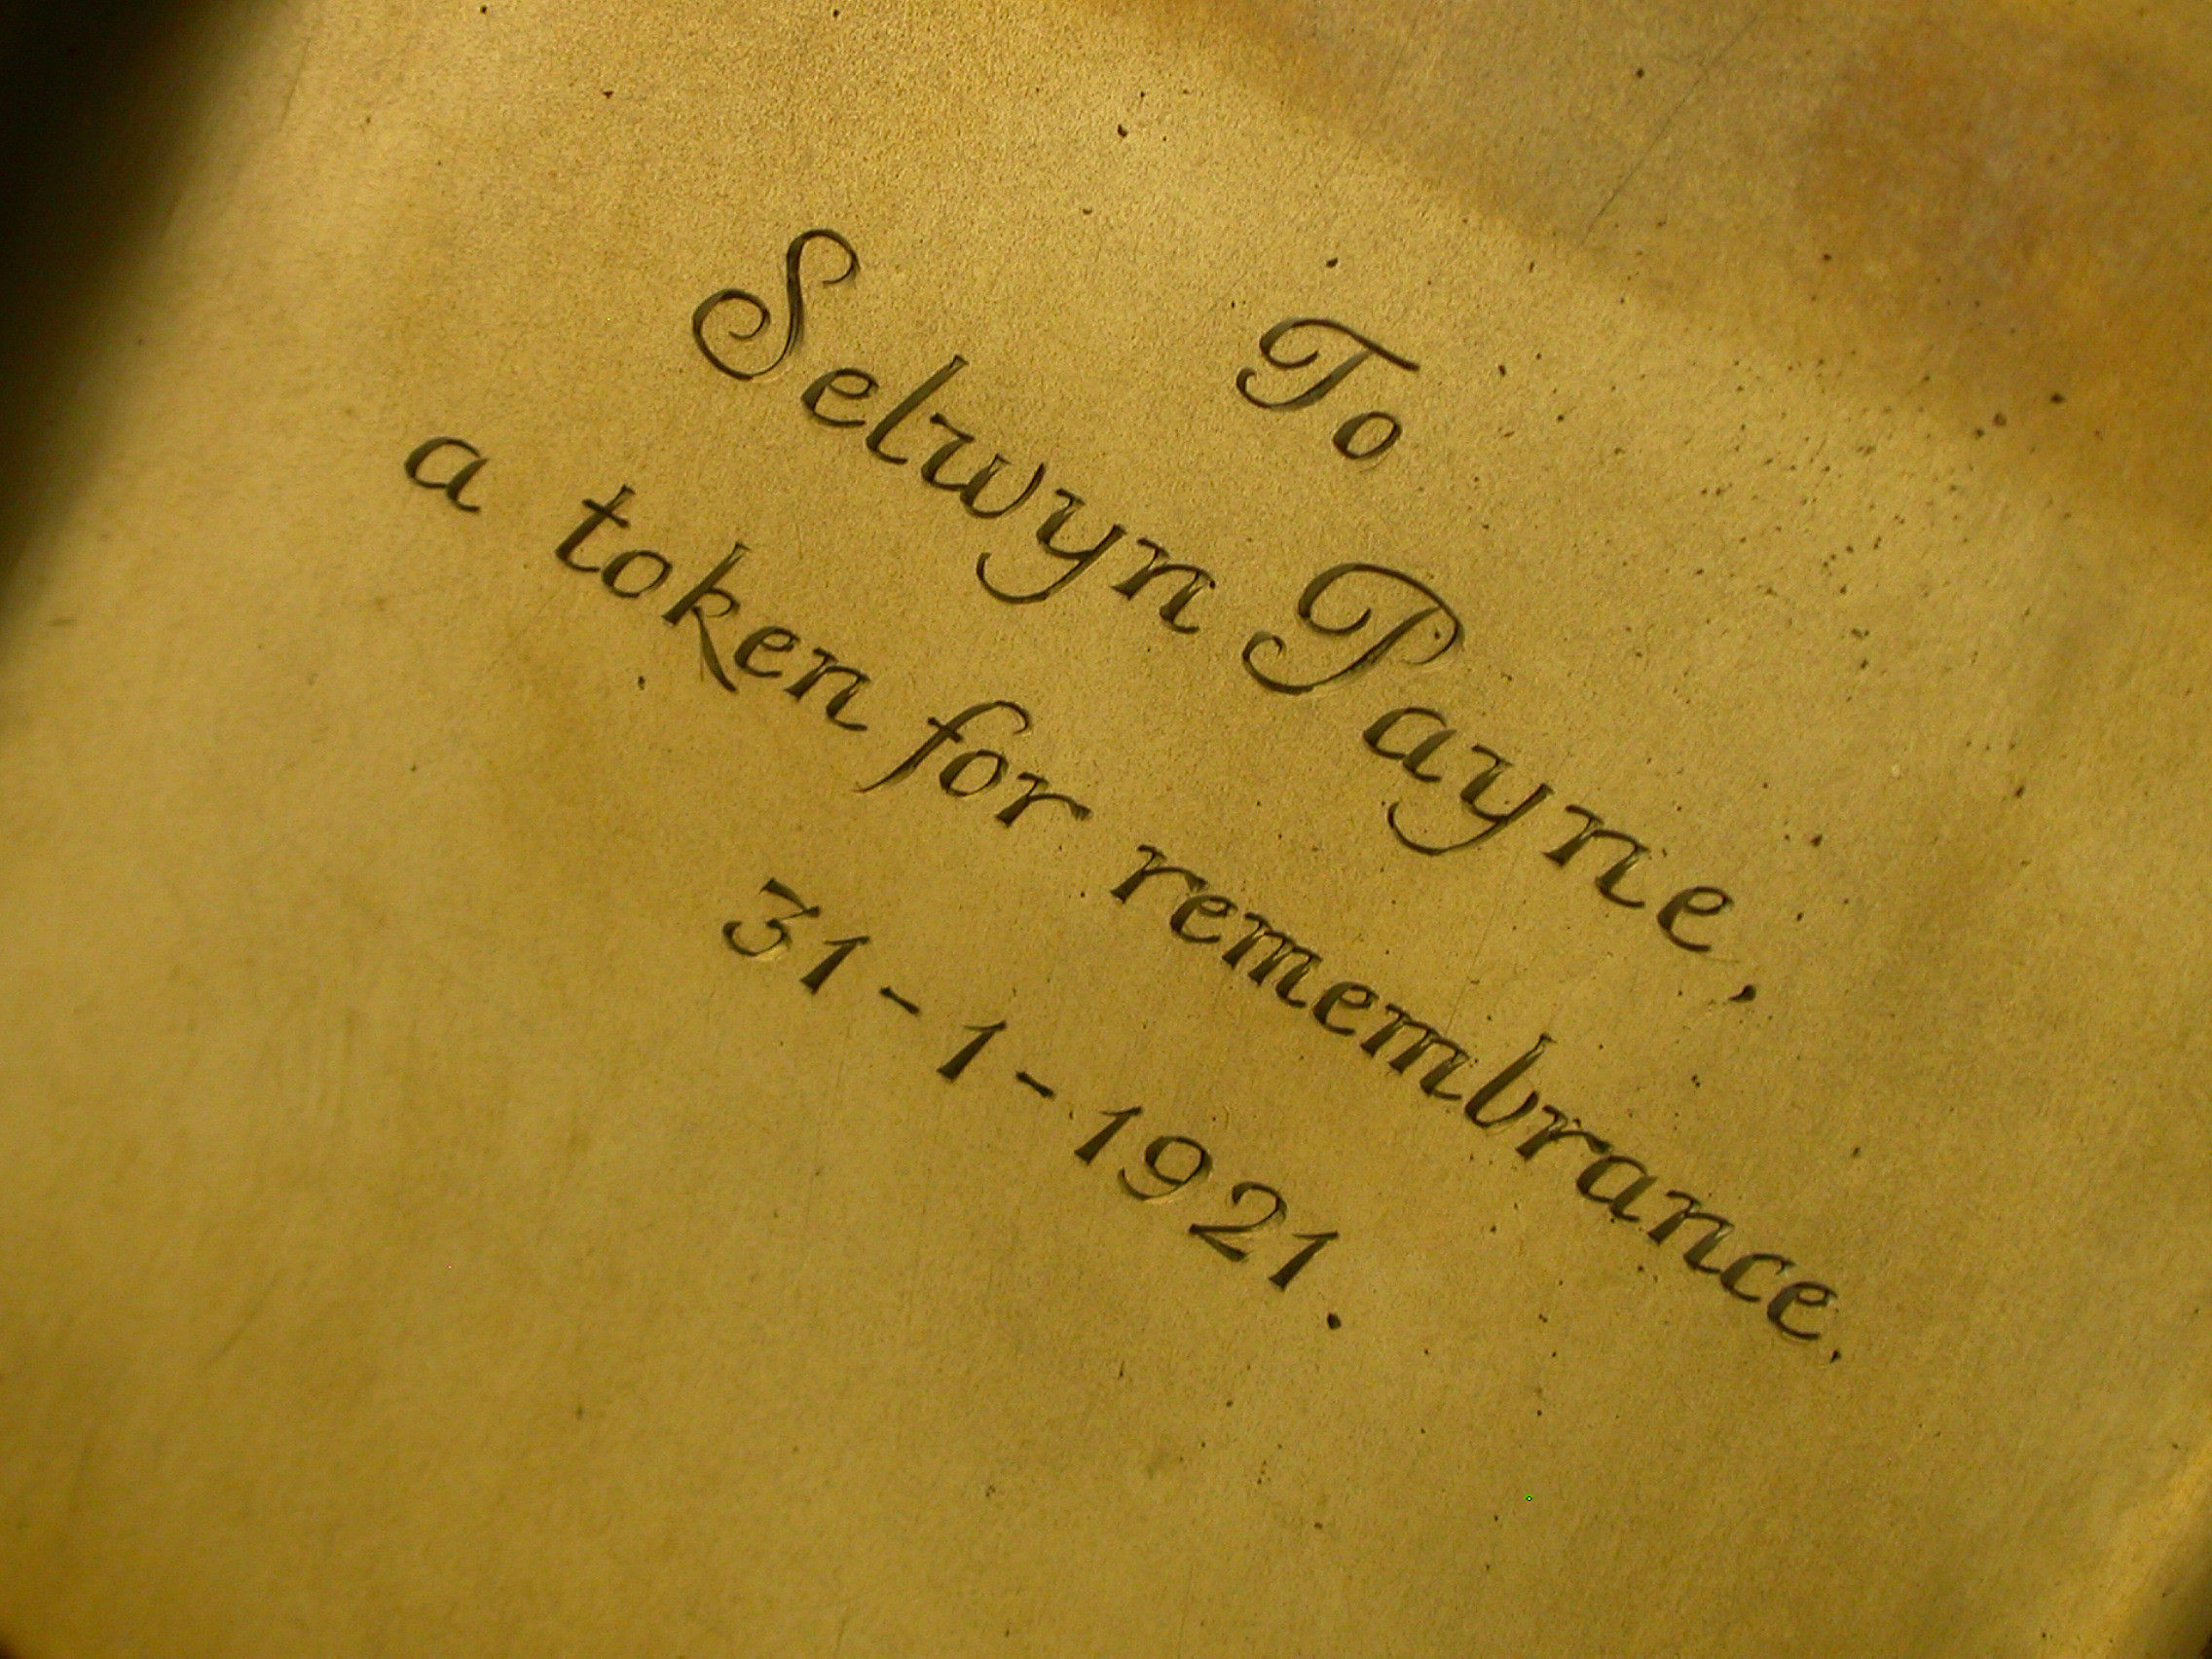 To
Selwyn Payne,
a token for remembrance.
31-1-1921.